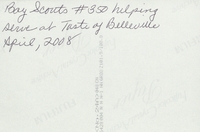 Boy Scouts #350 helping
serve at Taste of Belleville
April, 2008